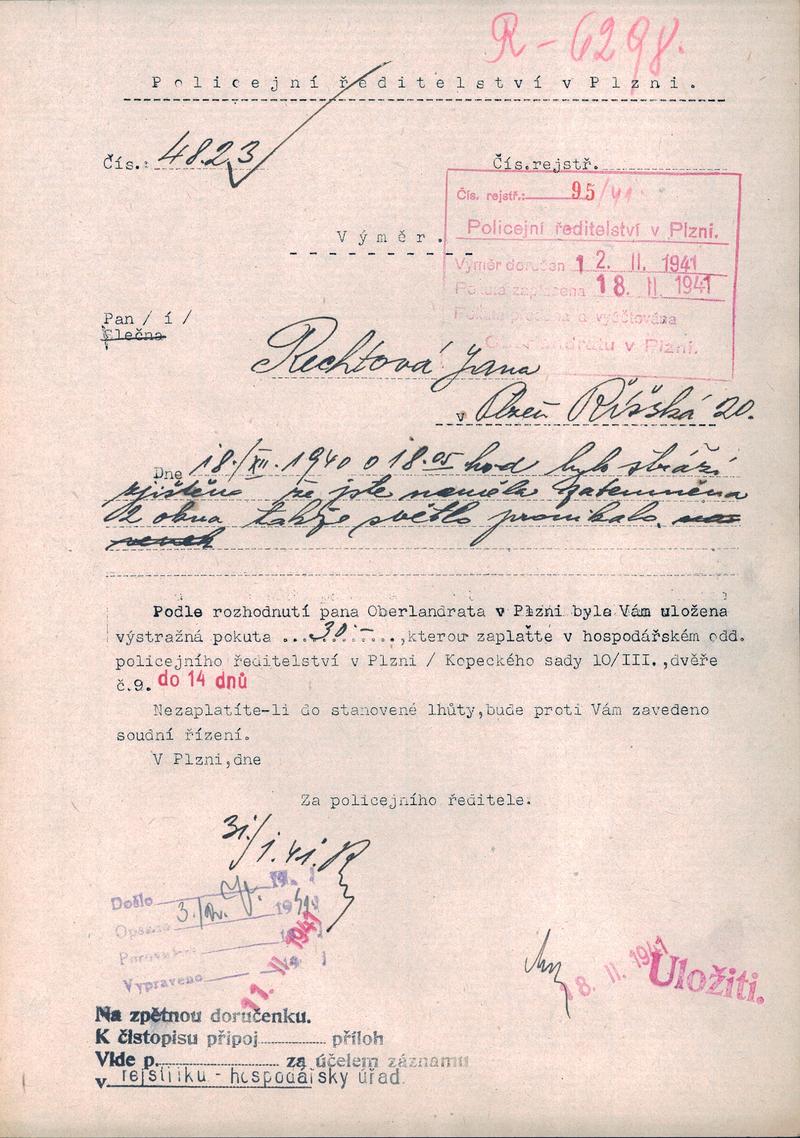 R - 6298.
Policejní ředitelství v Plzni.
Čís.: 4823
Čís.rejstř.
Čís. rejstř.: 95/41
Policejní ředitelství v Plzni.
Výměr.
Výměr doručen 12. II. 1941
Pokuta zaplacena 18. II. 1941
Pokuta a vyúčtována
v Plzni.
Pan / í /
Slečna
Rechtová Jana
v Plzeň Říšská 20.
Dne 18./XII. 1940 o 18.05 hod bylo stráží
zjištěno že jste neměla zatemněna
2 okna takže světlo pronikalo
Podle rozhodnutí pana Oberlandrata v Plzni byla Vám uložena
výstražná pokuta ...30.-...,kterou zaplaťte v hospodářském odd.
policejního ředitelství v Plzni / Kopeckého sady 10/III.,dvěře
č.9. do 14 dnů
Nezaplatíte-li do stanovené lhůty,bude proti Vám zavedeno
soudní řízení.
V Plzni,dne
Za policejního ředitele.
31/1.41.
Došlo
Opsáno 3./2. 1941
Porovnáno
Vypraveno
11. II. 1941
18. II. 1941
Uložiti.
Na zpětnou doručenku.
K čistopisu připoj příloh
Vide p. za účelem záznamu
v rejstříku - hospodářský úřad.